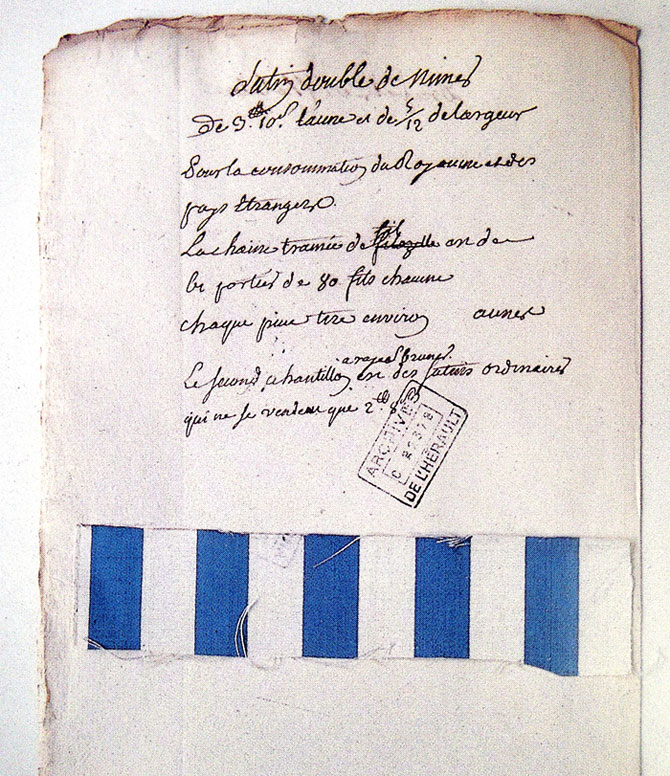 Satin double de Nimes
De 3ᵗᵗ 10ˢ l'aune et de 5/12 de largeur
Pour la consommation du Royaume et des
pays Etrangers.
La chaine tramée de fil est de
portées de 80 fils chacune
chaque piece tire environ aunes
a rayes brunes.
Le second echantillon est des satins ordinaires
qui ne se vendent que 2ᵗᵗ 8ˢ
ARCHIVES
C 2378
DE L'HÉRAULT